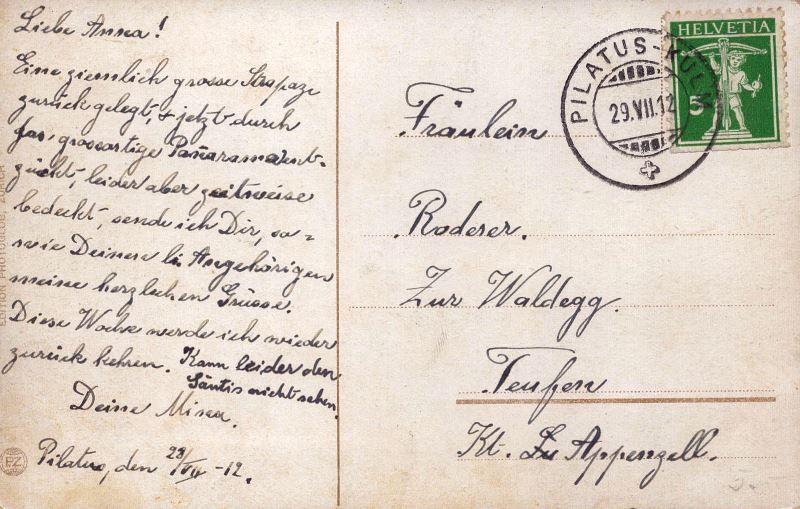 Liebe Anna!
Eine ziemlich grosse Strapaze
zurück gelegt, & jetzt durch
grossartige Panarama ent-
zückt, leider aber zeitweise
bedeckt, sende ich Dir, so=
wie Deinen lb. Angehörigen
meine herzlichen Grüsse.
Diese Woche werde ich wieder
zurück kehren. Kann leider den
Säntis nicht sehen.
Deine Mina.
Pilatus, den 28/VII -12.
EDITION PHOTOGLOB, ZÜRICH
PZ
PILATUS-KULM
29.VII.12
HELVETIA
5
Fräulein
Roderer.
Zur Waldegg.
Teufen
Kt. Appenzell.
5.-